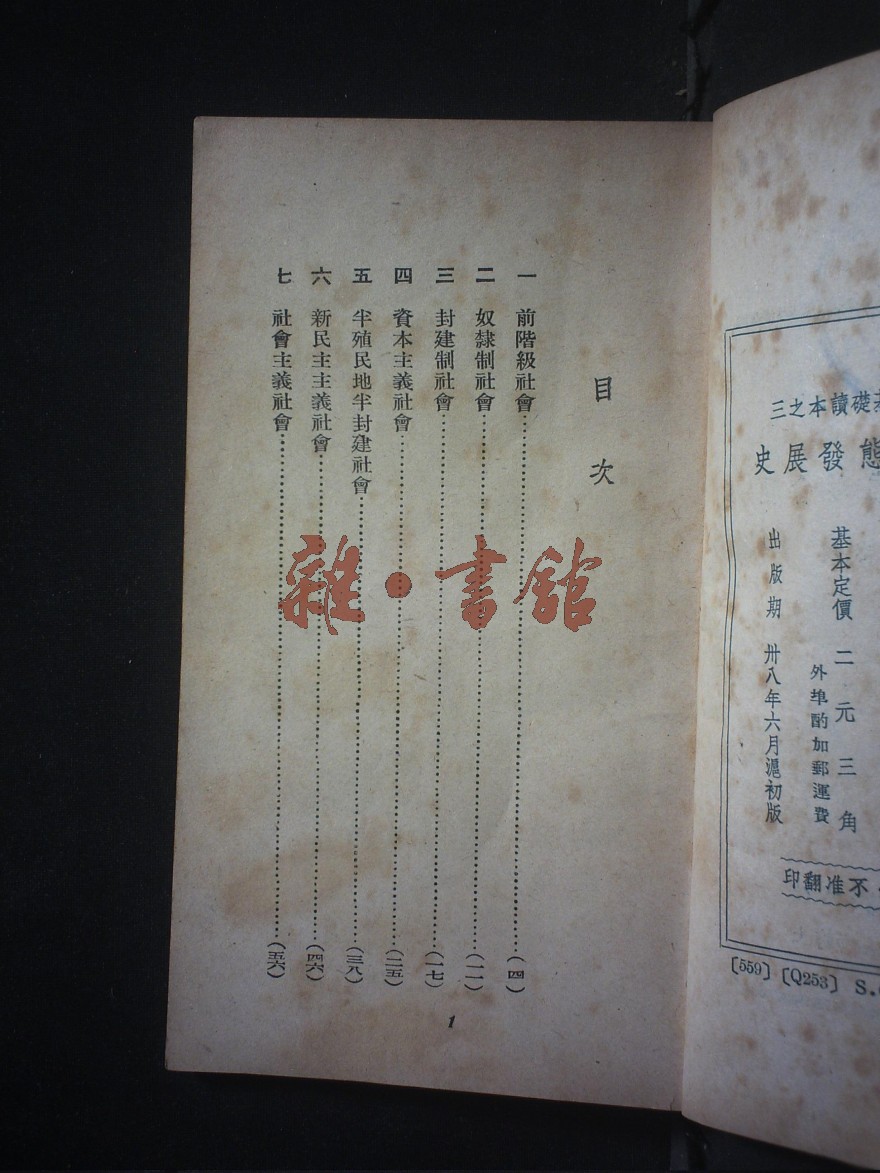 基礎讀本之三
態發展史
基本定價 二元三角
外埠酌加郵運費
出版期 卅八年六月滬初版
不准翻印
[559] [Q253] S.
目次
一 前階級社會……(四)
二 奴隸制社會……(一一)
三 封建制社會……(一七)
四 資本主義社會……(二五)
五 半殖民地半封建社會……(三八)
六 新民主主義社會……(四六)
七 社會主義社會……(五六)
1
雜·書館